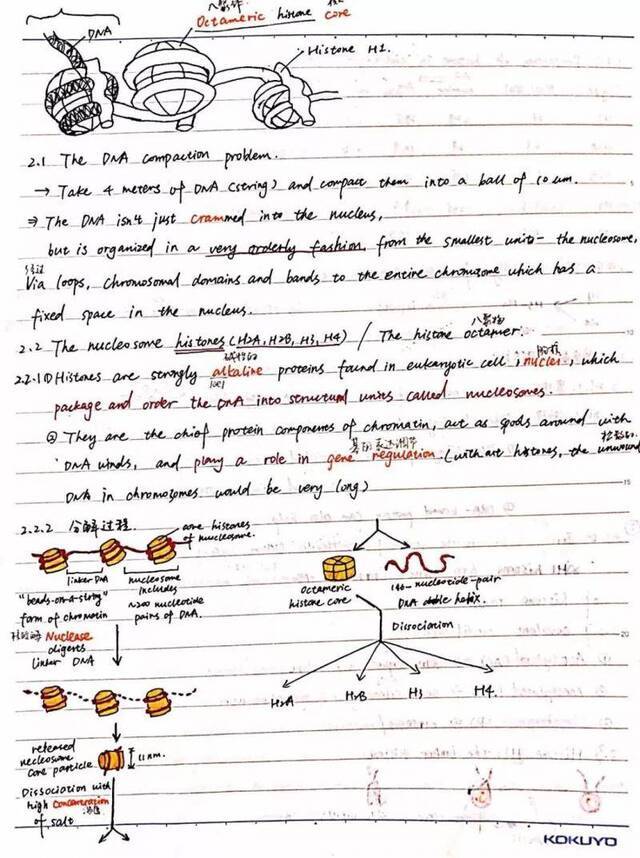 八聚体 核
Octameric histone core
DNA
Histone H1.
2.1 The DNA compaction problem.
→ Take 4 meters of DNA (string) and compact them into a ball of 10 um.
⇒ The DNA isn't just crammed into the nucleus,
but is organized in a very orderly fashion, from the smallest unit - the nucleosome,
经过
Via loops, chromosomal domains and bands to the entire chromosome which has a
fixed space in the nucleus.
八聚物
2.2 The nucleosome histones (H2A, H2B, H3, H4) / The histone octamer.
碱性的 胞核
2.2.1 ① Histones are strongly alkaline proteins found in eukaryotic cell nuclei, which
package and order the DNA into structural units called nucleosomes.
② They are the chief protein components of chromatin, act as spools around with
基因表达调节
DNA winds, and play a role in gene regulation. (without histones, the unwound
DNA in chromosomes would be very long)
2.2.2 分解过程.
core histones
of nucleosome.
linker DNA
nucleosome
includes
~200 nucleotide
pairs of DNA.
"beads-on-a-string"
form of chromatin
Nuclease
digests
linker DNA
released
nucleosome
core particle
11 nm.
Dissociation with
high concentration
浓度
of salt
Octameric
histone core
146-nucleotide-pair
DNA double helix.
Dissociation
H2A
H2B
H3
H4.
5
10
15
20
KOKUYO